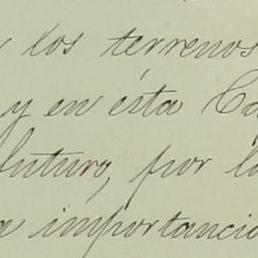 los terrenos
y en ésta Ca
futuro, por l
importancia